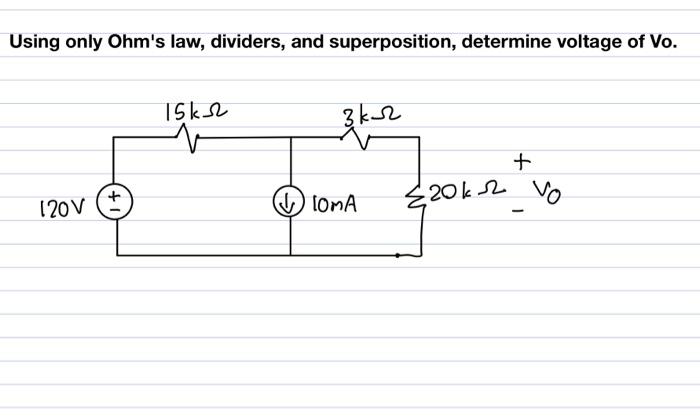 Using only Ohm's law, dividers, and superposition, determine voltage of Vo.
15kΩ
3kΩ
120V
+
-
10mA
20kΩ
+
Vo
-